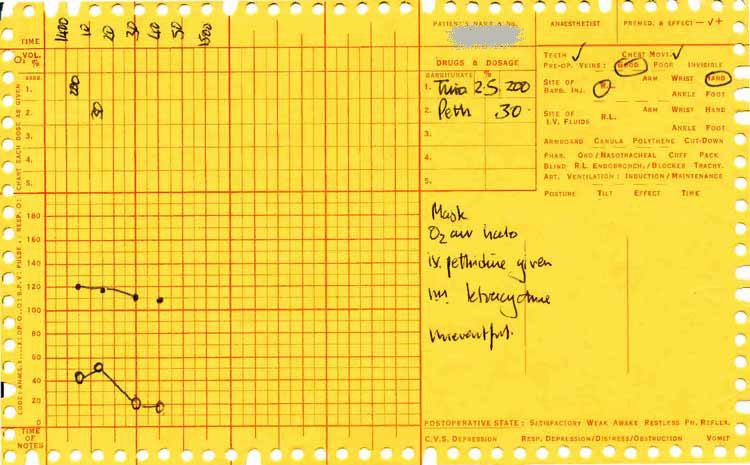 PATIENT'S NAME & NO.
ANAESTHETIST
PREMED. & EFFECT — ✓ +
TIME
1400 10 20 30 40 50 1500
O₂ VOL. %
DRUGS & DOSAGE
BARBITURATE %
1. Thio 2.5 200
2. Peth 30
3.
4.
5.
BARB.
1. 200
2. 30
3.
4.
5.
CHART EACH DOSE AS GIVEN
TEETH ✓ CHEST MOVT. ✓
PRE-OP. VEINS: GOOD POOR INVISIBLE
SITE OF BARB. INJ. R.L. ARM WRIST HAND
ANKLE FOOT
SITE OF I.V. FLUIDS R.L. ARM WRIST HAND
ANKLE FOOT
ARMBOARD CANULA POLYTHENE CUT-DOWN
PHAR. ORO/NASOTRACHEAL CUFF PACK
BLIND R.L. ENDOBRONCH./BLOCKER TRACHY.
ART. VENTILATION: INDUCTION/MAINTENANCE
POSTURE TILT EFFECT TIME
180
160
140
120
100
80
60
40
20
0
Mask
O₂ air halo
iv. pethidine given
im. tetracycline
Uneventful.
TIME OF NOTES
POSTOPERATIVE STATE: SATISFACTORY WEAK AWAKE RESTLESS PH. REFLEX.
C.V.S. DEPRESSION RESP. DEPRESSION/DISTRESS/OBSTRUCTION VOMIT